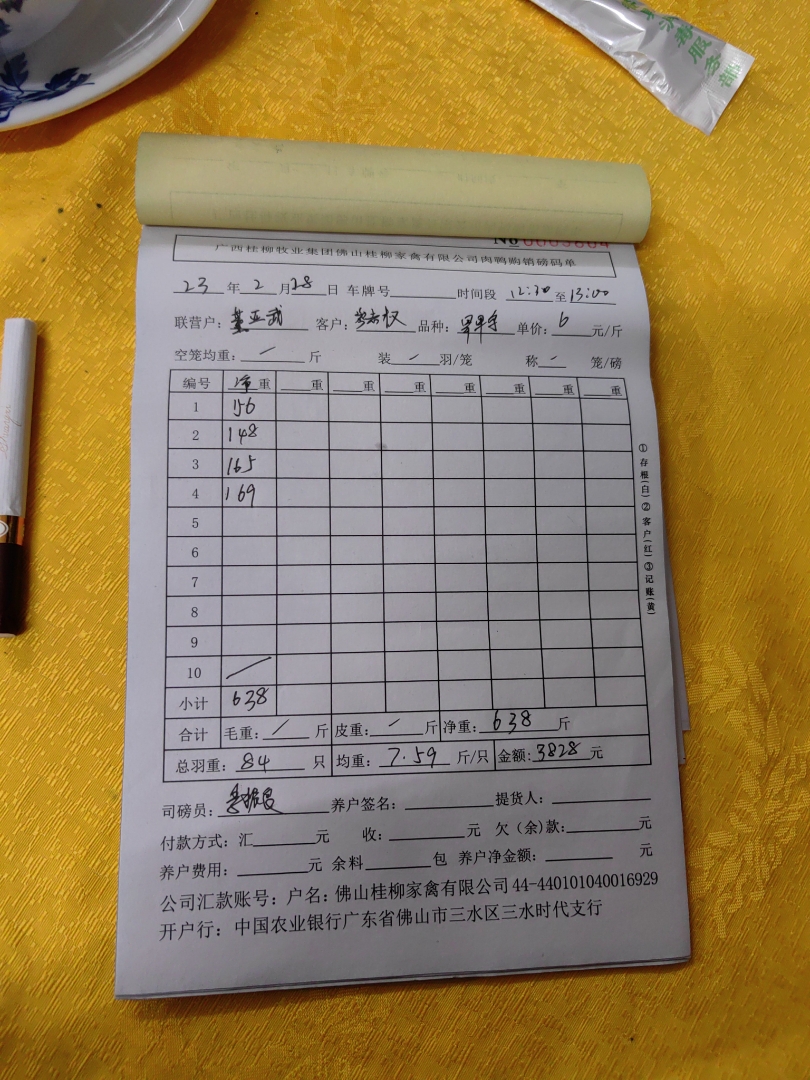 服务部
No 0003804
广西桂柳牧业集团佛山桂柳家禽有限公司肉鸭购销磅码单
23 年 2 月 28 日 车牌号 时间段 12:30 至 13:00
联营户: 董亚武 客户: 品种: 单价: 6 元/斤
空笼均重: / 斤 装 / 羽/笼 称 / 笼/磅
编号 净重 重 重 重 重 重 重 重
1 156
2 148
3 165
4 169
5
6
7
8
9
10 /
小计 638
合计 毛重: / 斤 皮重: / 斤 净重: 638 斤
总羽重: 84 只 均重: 7.59 斤/只 金额: 3828 元
司磅员: 养户签名: 提货人:
付款方式: 汇 元 收: 元 欠(余)款: 元
养户费用: 元 余料 包 养户净金额: 元
公司汇款账号: 户名: 佛山桂柳家禽有限公司 44-440101040016929
开户行: 中国农业银行广东省佛山市三水区三水时代支行
①存根(白)②客户(红)③记账(黄)